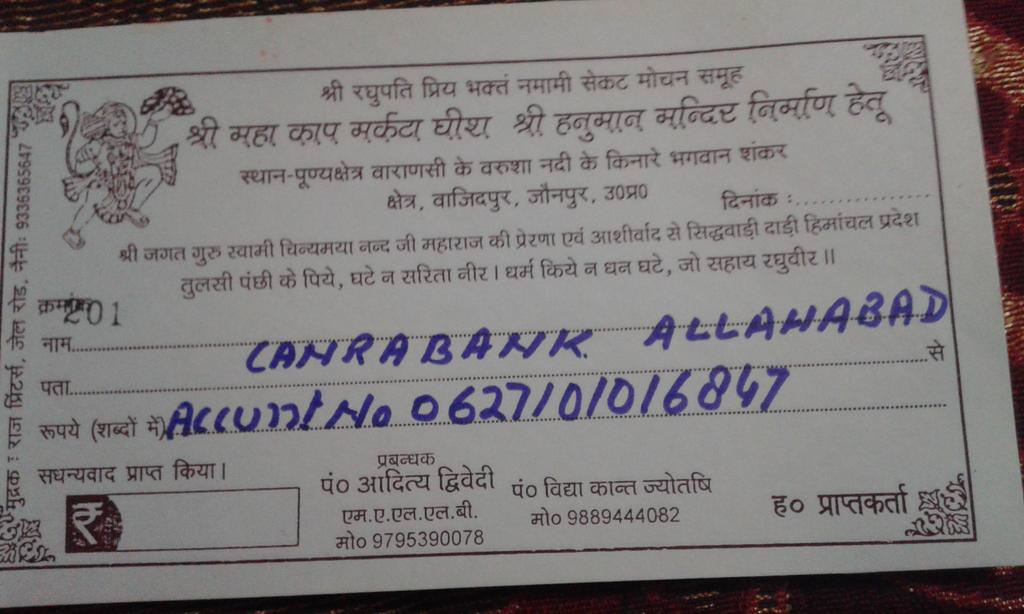 श्री रघुपति प्रिय भक्तं नमामी सेकट मोचन समूह
श्री महा काप मर्कटा घीश श्री हनुमान् मन्दिर निर्माण हेतू
स्थान-पूण्यक्षेत्र वाराणसी के वरुशा नदी के किनारे भगवान शंकर
क्षेत्र, वाजिदपुर, जौनपुर, उ०प्र०
दिनांक :.....................
श्री जगत गुरु स्वामी चिन्यमया नन्द जी महाराज की प्रेरणा एवं आशीर्वाद से सिद्धवाड़ी दाड़ी हिमांचल प्रदेश
तुलसी पंछी के पिये, घटे न सरिता नीर । धर्म किये न धन घटे, जो सहाय रघुवीर ।।
क्रमांक 201
नाम CANRA BANK. ALLAHABAD
पता से
रूपये (शब्दों में) ACCUNT No 0627101016847
सधन्यवाद प्राप्त किया।
₹
प्रबन्धक
पं० आदित्य द्विवेदी
एम.ए.एल.एल.बी.
मो० 9795390078
पं० विद्या कान्त ज्योतषि
मो० 9889444082
ह० प्राप्तकर्ता
मुद्रक : राजा प्रिंटर्स, जेल रोड, नैनी: 9336365647